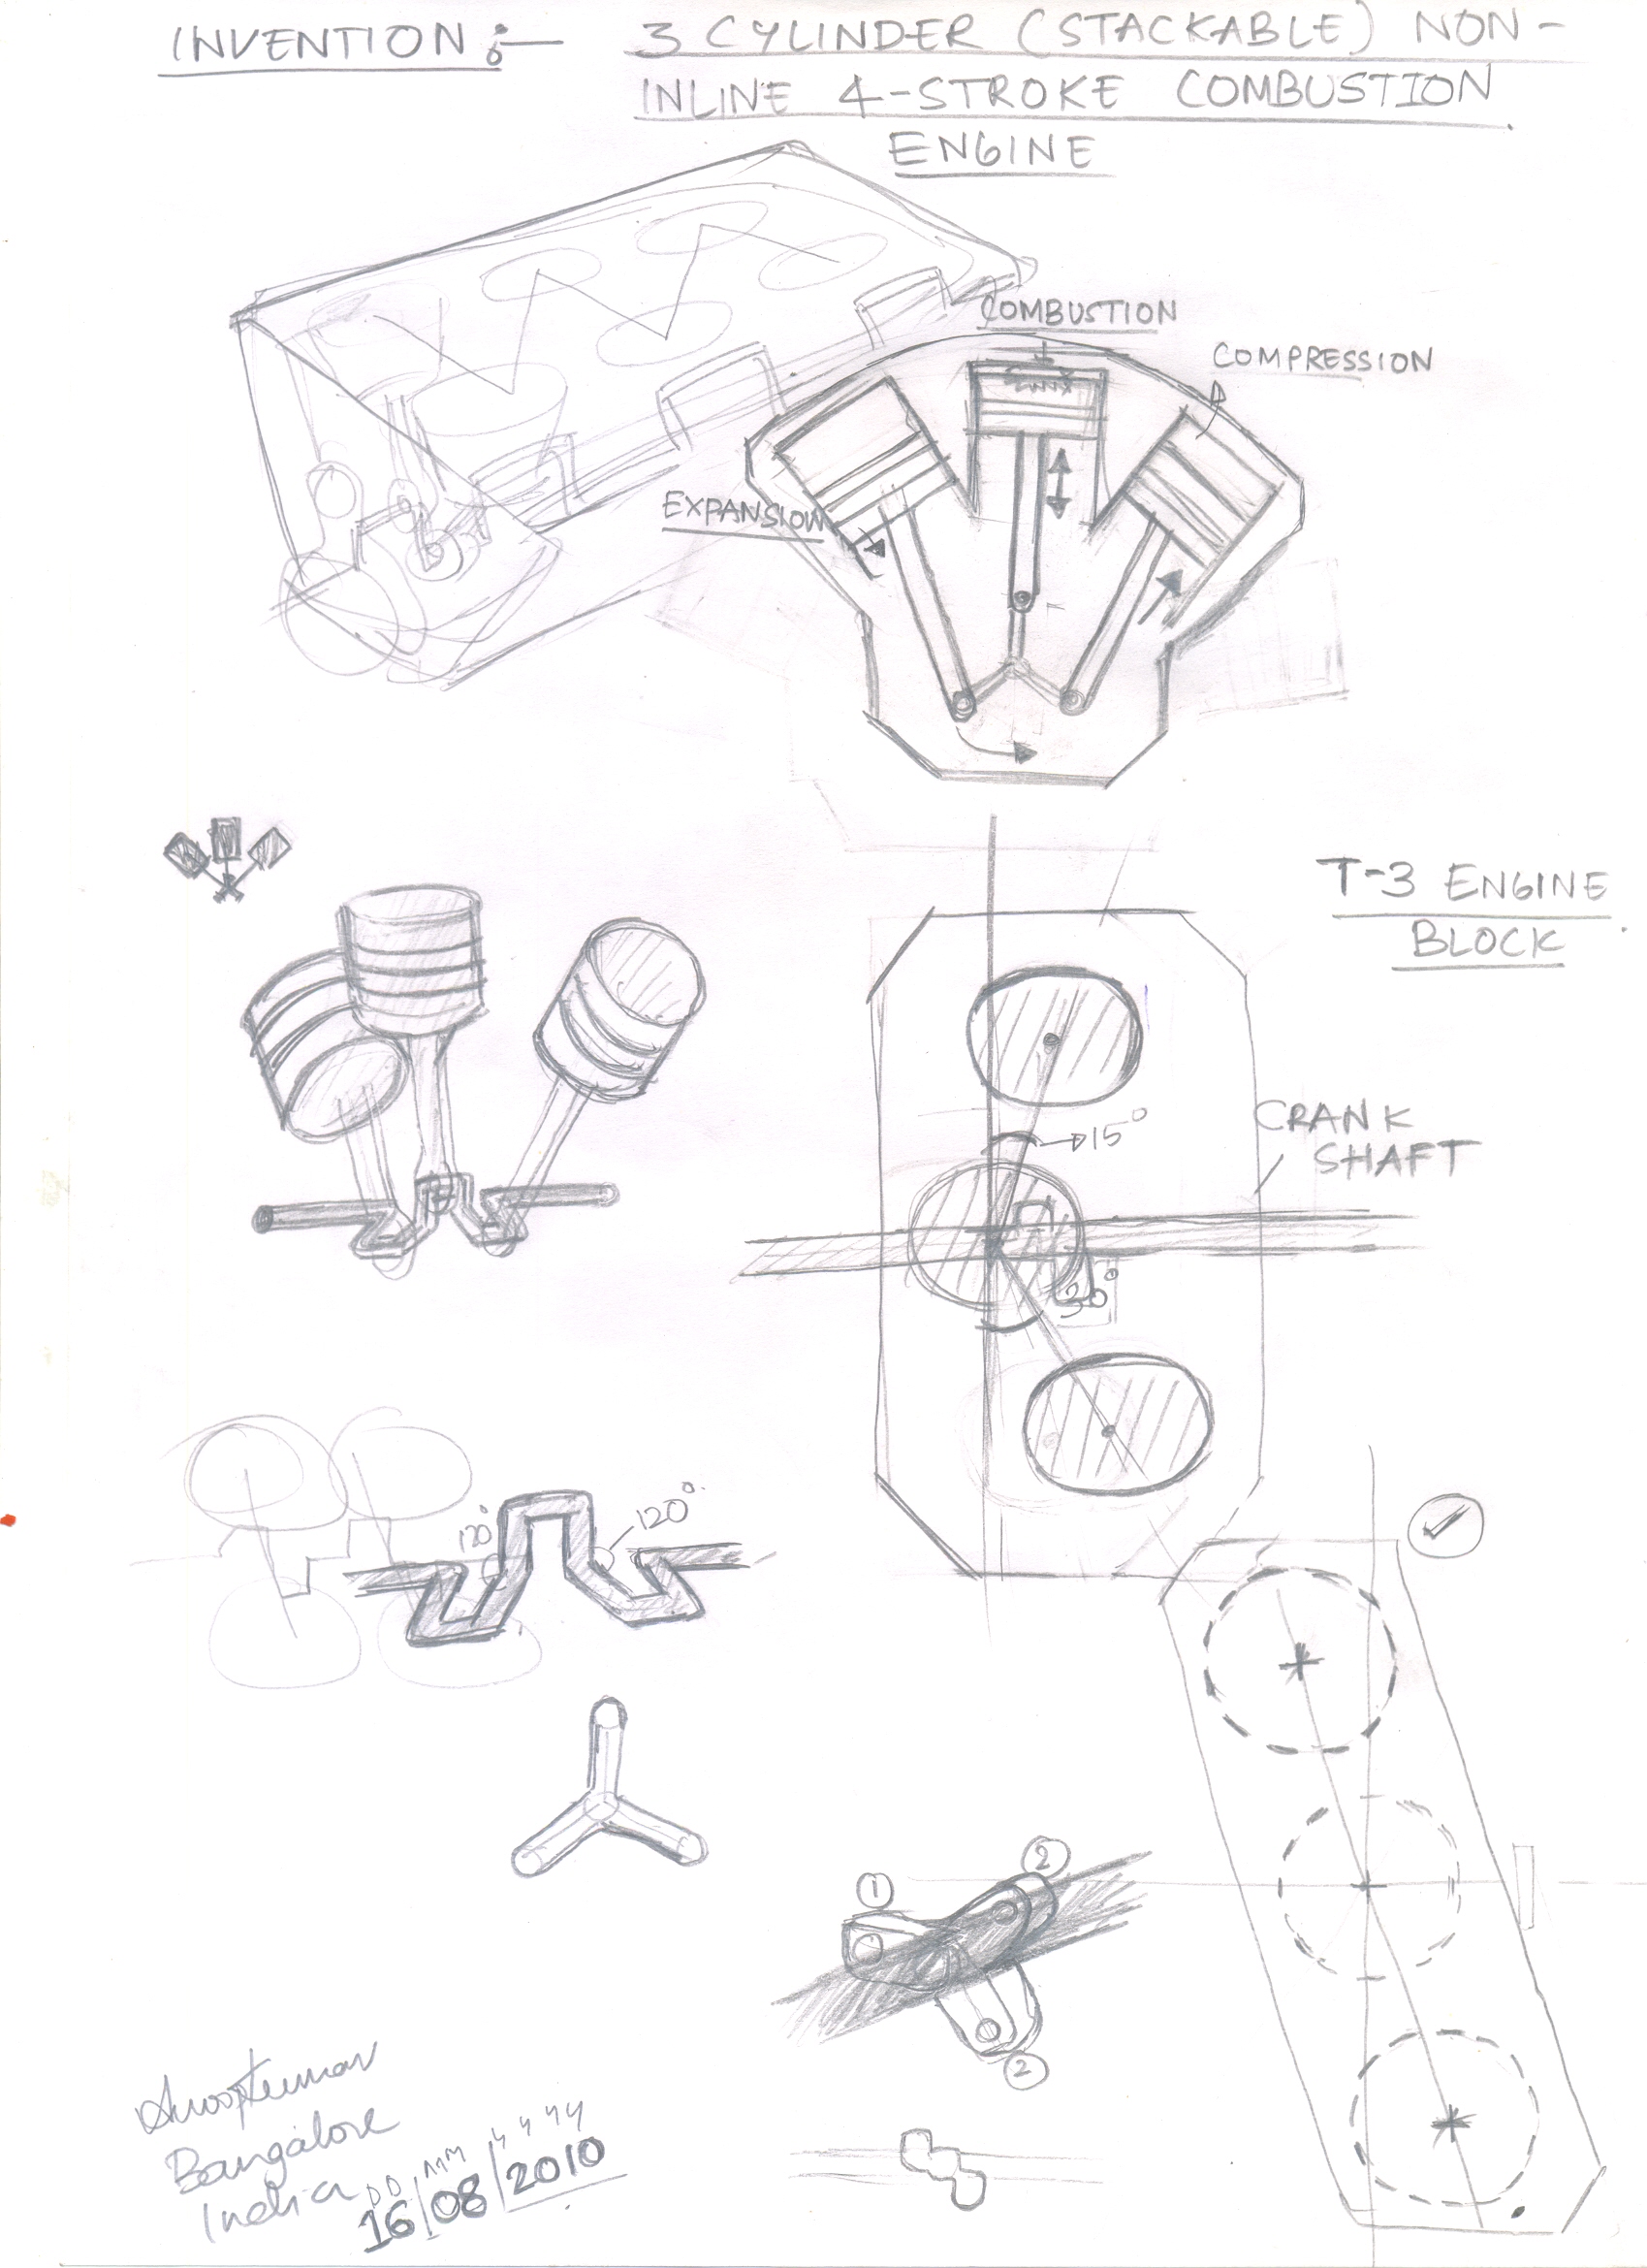 INVENTION :— 3 CYLINDER (STACKABLE) NON-
INLINE 4-STROKE COMBUSTION
ENGINE
COMBUSTION
COMPRESSION
EXPANSION
T-3 ENGINE
BLOCK
15°
CRANK
SHAFT
30°
120°
120°
1
2
2
Bangalore
India
DD MM YYYY
16/08/2010